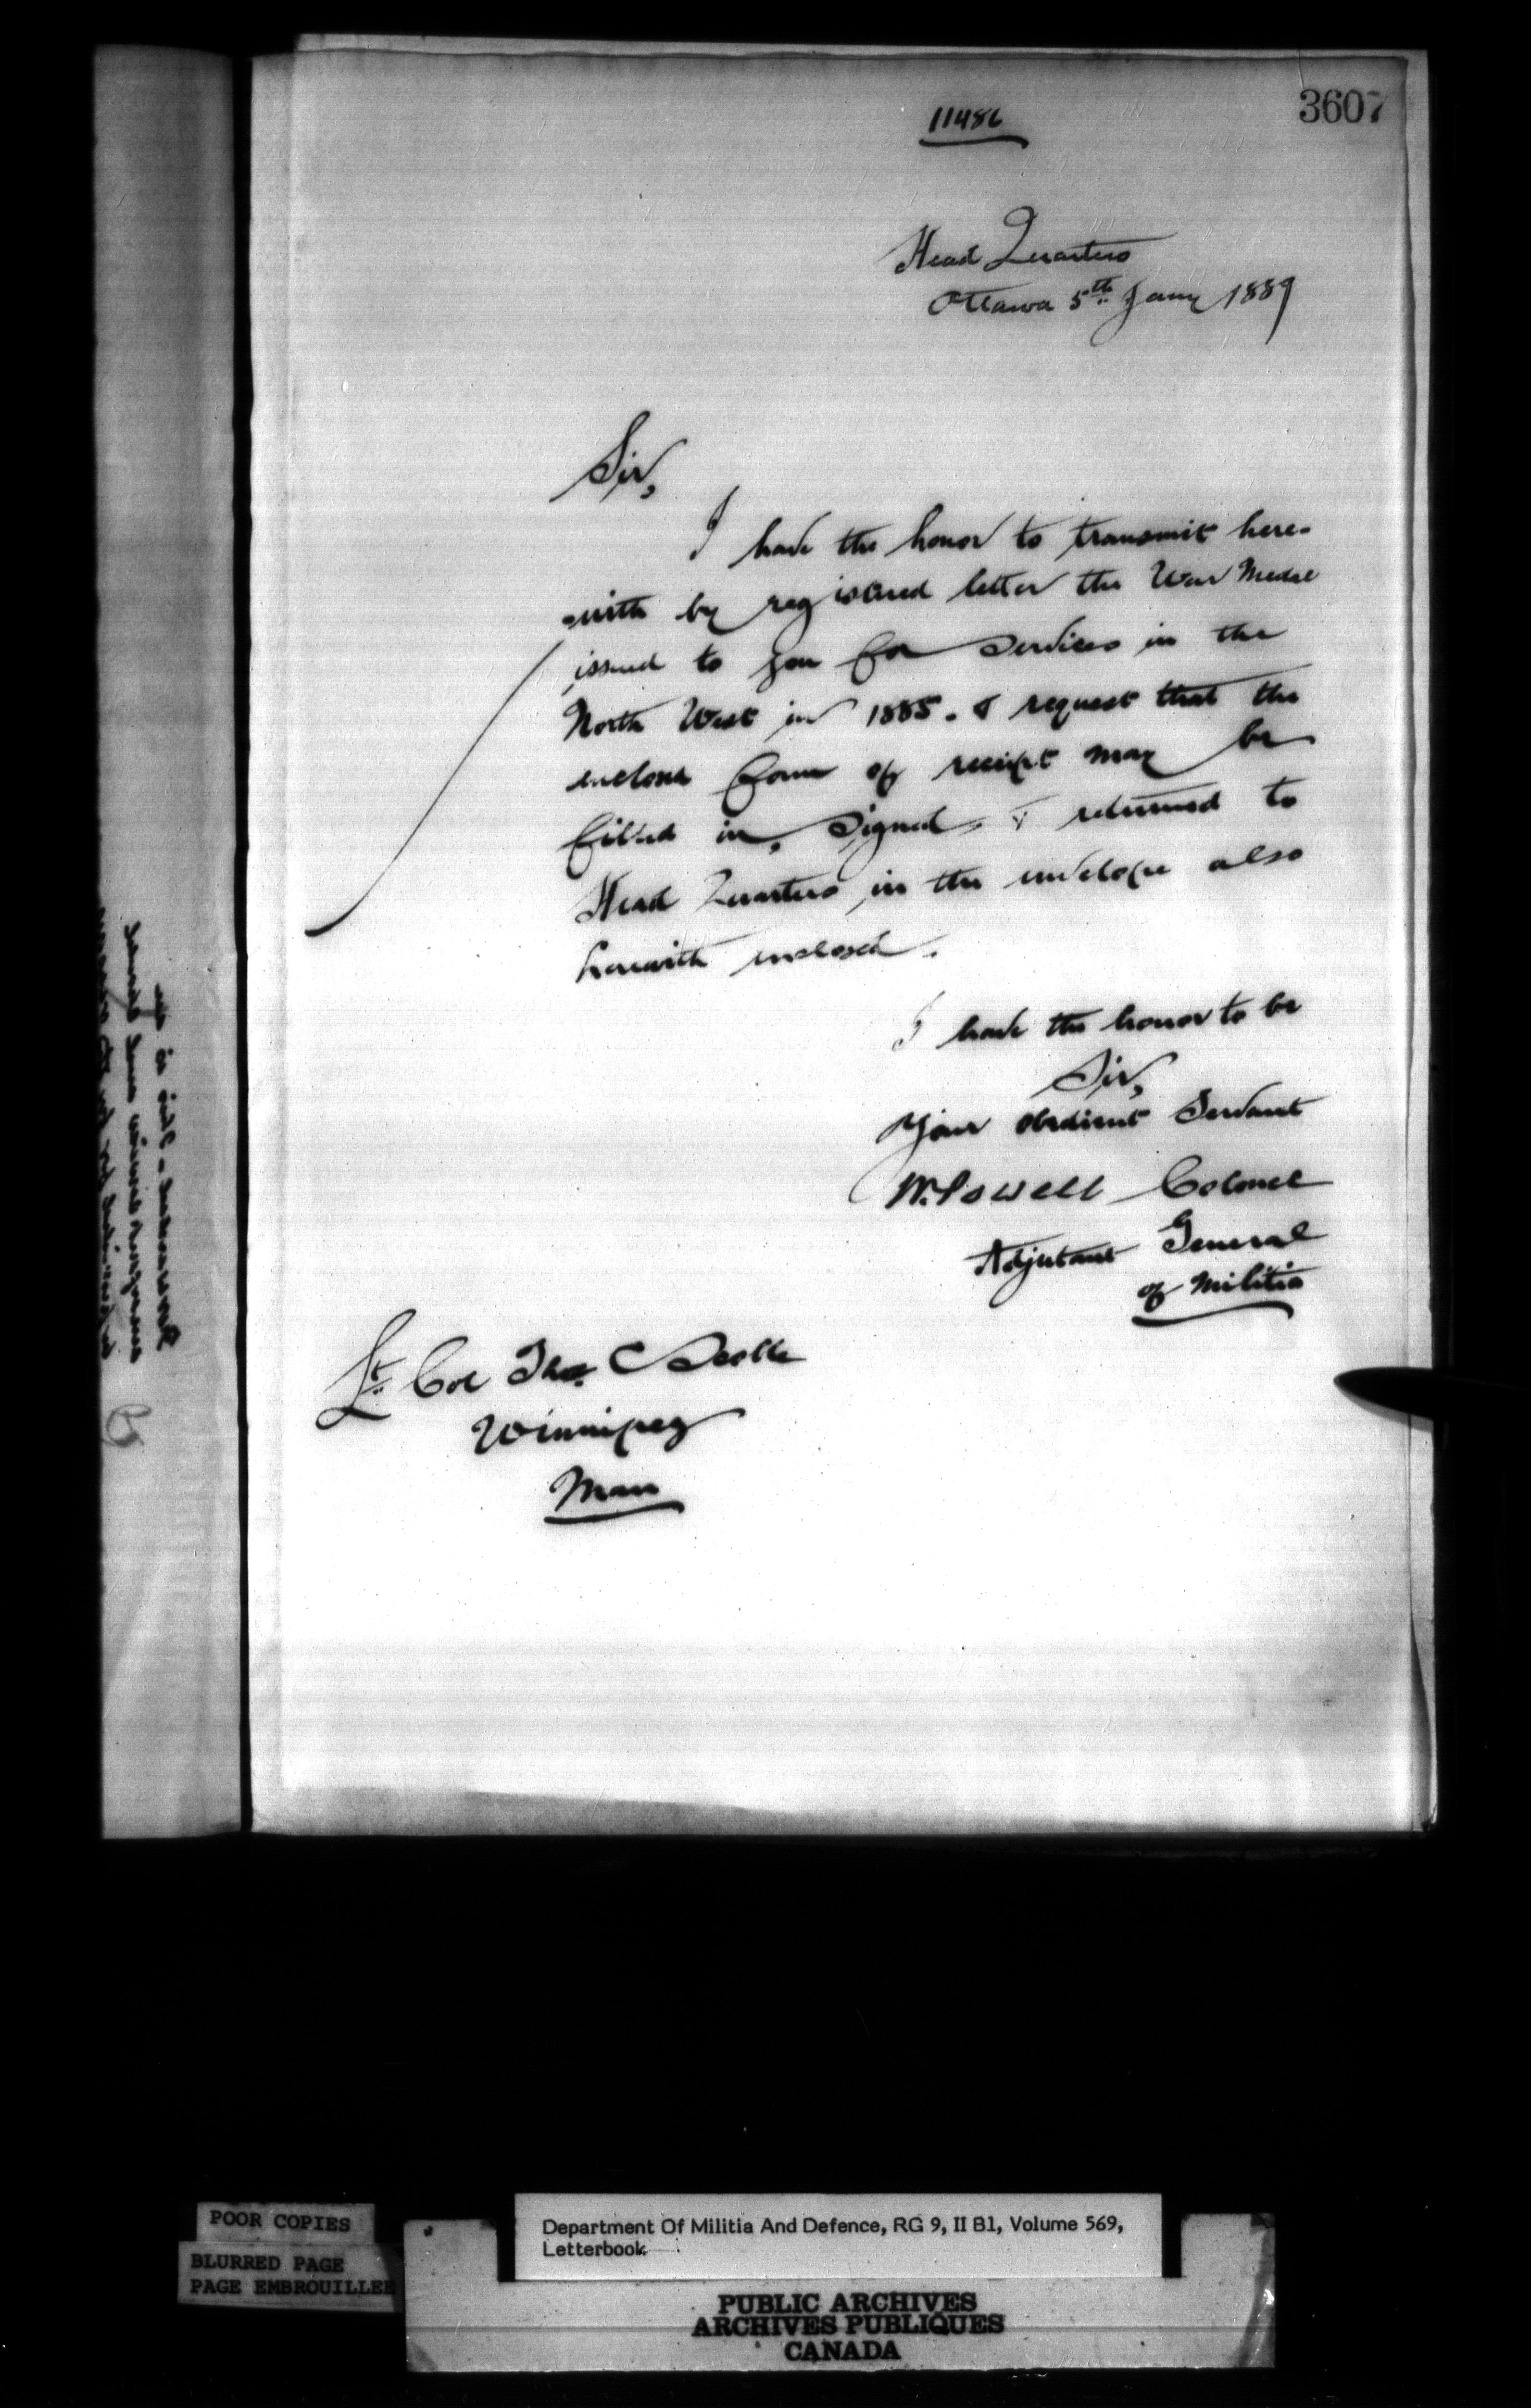 3607
11486
Head Quarters
Ottawa 5th Jany 1889
Sir,
I have the honor to transmit here-
-with by registered letter the War Medal
issued to you for services in the
North West in 1885. & request that the
enclosed form of receipt may be
filled in, signed, & returned to
Head Quarters in the envelope also
herewith enclosed.
I have the honor to be
Sir,
Your obedient Servant
W. Powell Colonel
Adjutant General
of Militia
Lt. Col Thos. C Scoble
Winnipeg
Man
POOR COPIES
BLURRED PAGE
PAGE EMBROUILLEE
Department Of Militia And Defence, RG 9, II B1, Volume 569,
Letterbook
PUBLIC ARCHIVES
ARCHIVES PUBLIQUES
CANADA